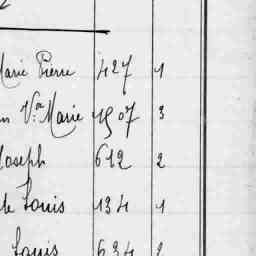 Marie Pierre 427 1
Vve Marie 1507 3
Joseph 612 2
de Louis 134 1
Louis 634 2